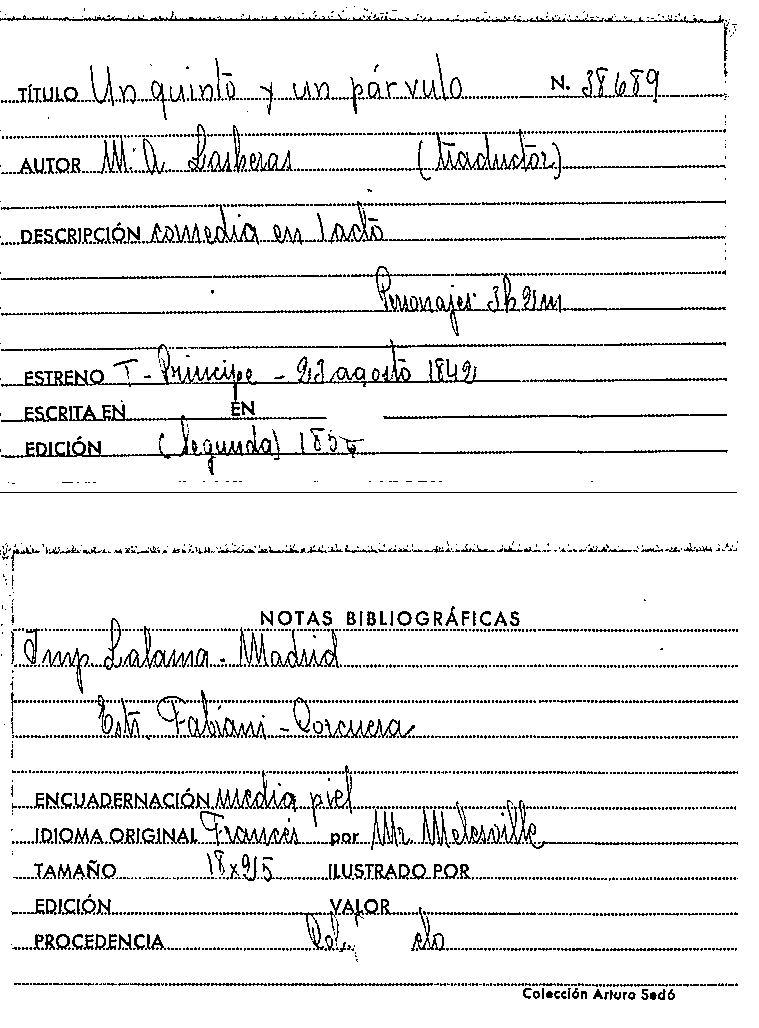 TÍTULO Un quinto y un párvulo N. 38689
AUTOR M. A. Lasheras (traductor)
DESCRIPCIÓN comedia en 1 acto
Personajes: 3h 2m
ESTRENO T - Principe - 23 agosto 1842
ESCRITA EN EN
EDICIÓN (Segunda)
NOTAS BIBLIOGRÁFICAS
Imp. Lalama. Madrid
Estr. Fabiani - Corcuera
ENCUADERNACIÓN media piel
IDIOMA ORIGINAL Francés por Mr. Melesville
TAMAÑO ILUSTRADO POR
EDICIÓN VALOR
PROCEDENCIA
Colección Arturo Sedó